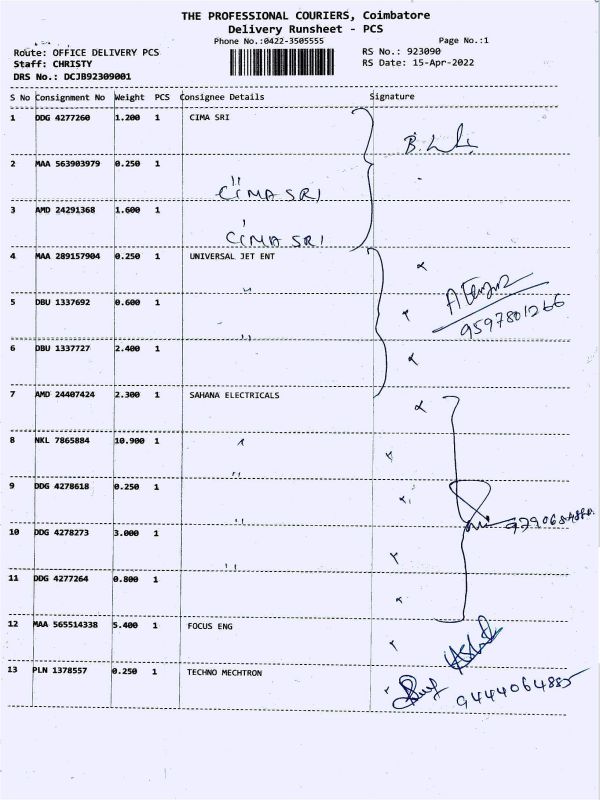 THE PROFESSIONAL COURIERS, Coimbatore
Delivery Runsheet - PCS
Phone No.:0422-3505555 Page No.:1
Route: OFFICE DELIVERY PCS RS No.: 923090
Staff: CHRISTY RS Date: 15-Apr-2022
DRS No.: DCJB92309001
S No Consignment No Weight PCS Consignee Details Signature
1 DDG 4277260 1.200 1 CIMA SRI
2 MAA 563903979 0.250 1
CIMA SRI
3 AMD 24291368 1.600 1
CIMA SRI
4 MAA 289157904 0.250 1 UNIVERSAL JET ENT
5 DBU 1337692 0.600 1
9597801266
6 DBU 1337727 2.400 1
7 AMD 24407424 2.300 1 SAHANA ELECTRICALS
8 NKL 7865884 10.900 1
9 DDG 4278618 0.250 1
10 DDG 4278273 3.000 1
11 DDG 4277264 0.800 1
12 MAA 565514338 5.400 1 FOCUS ENG
13 PLN 1378557 0.250 1 TECHNO MECHTRON
9444064885